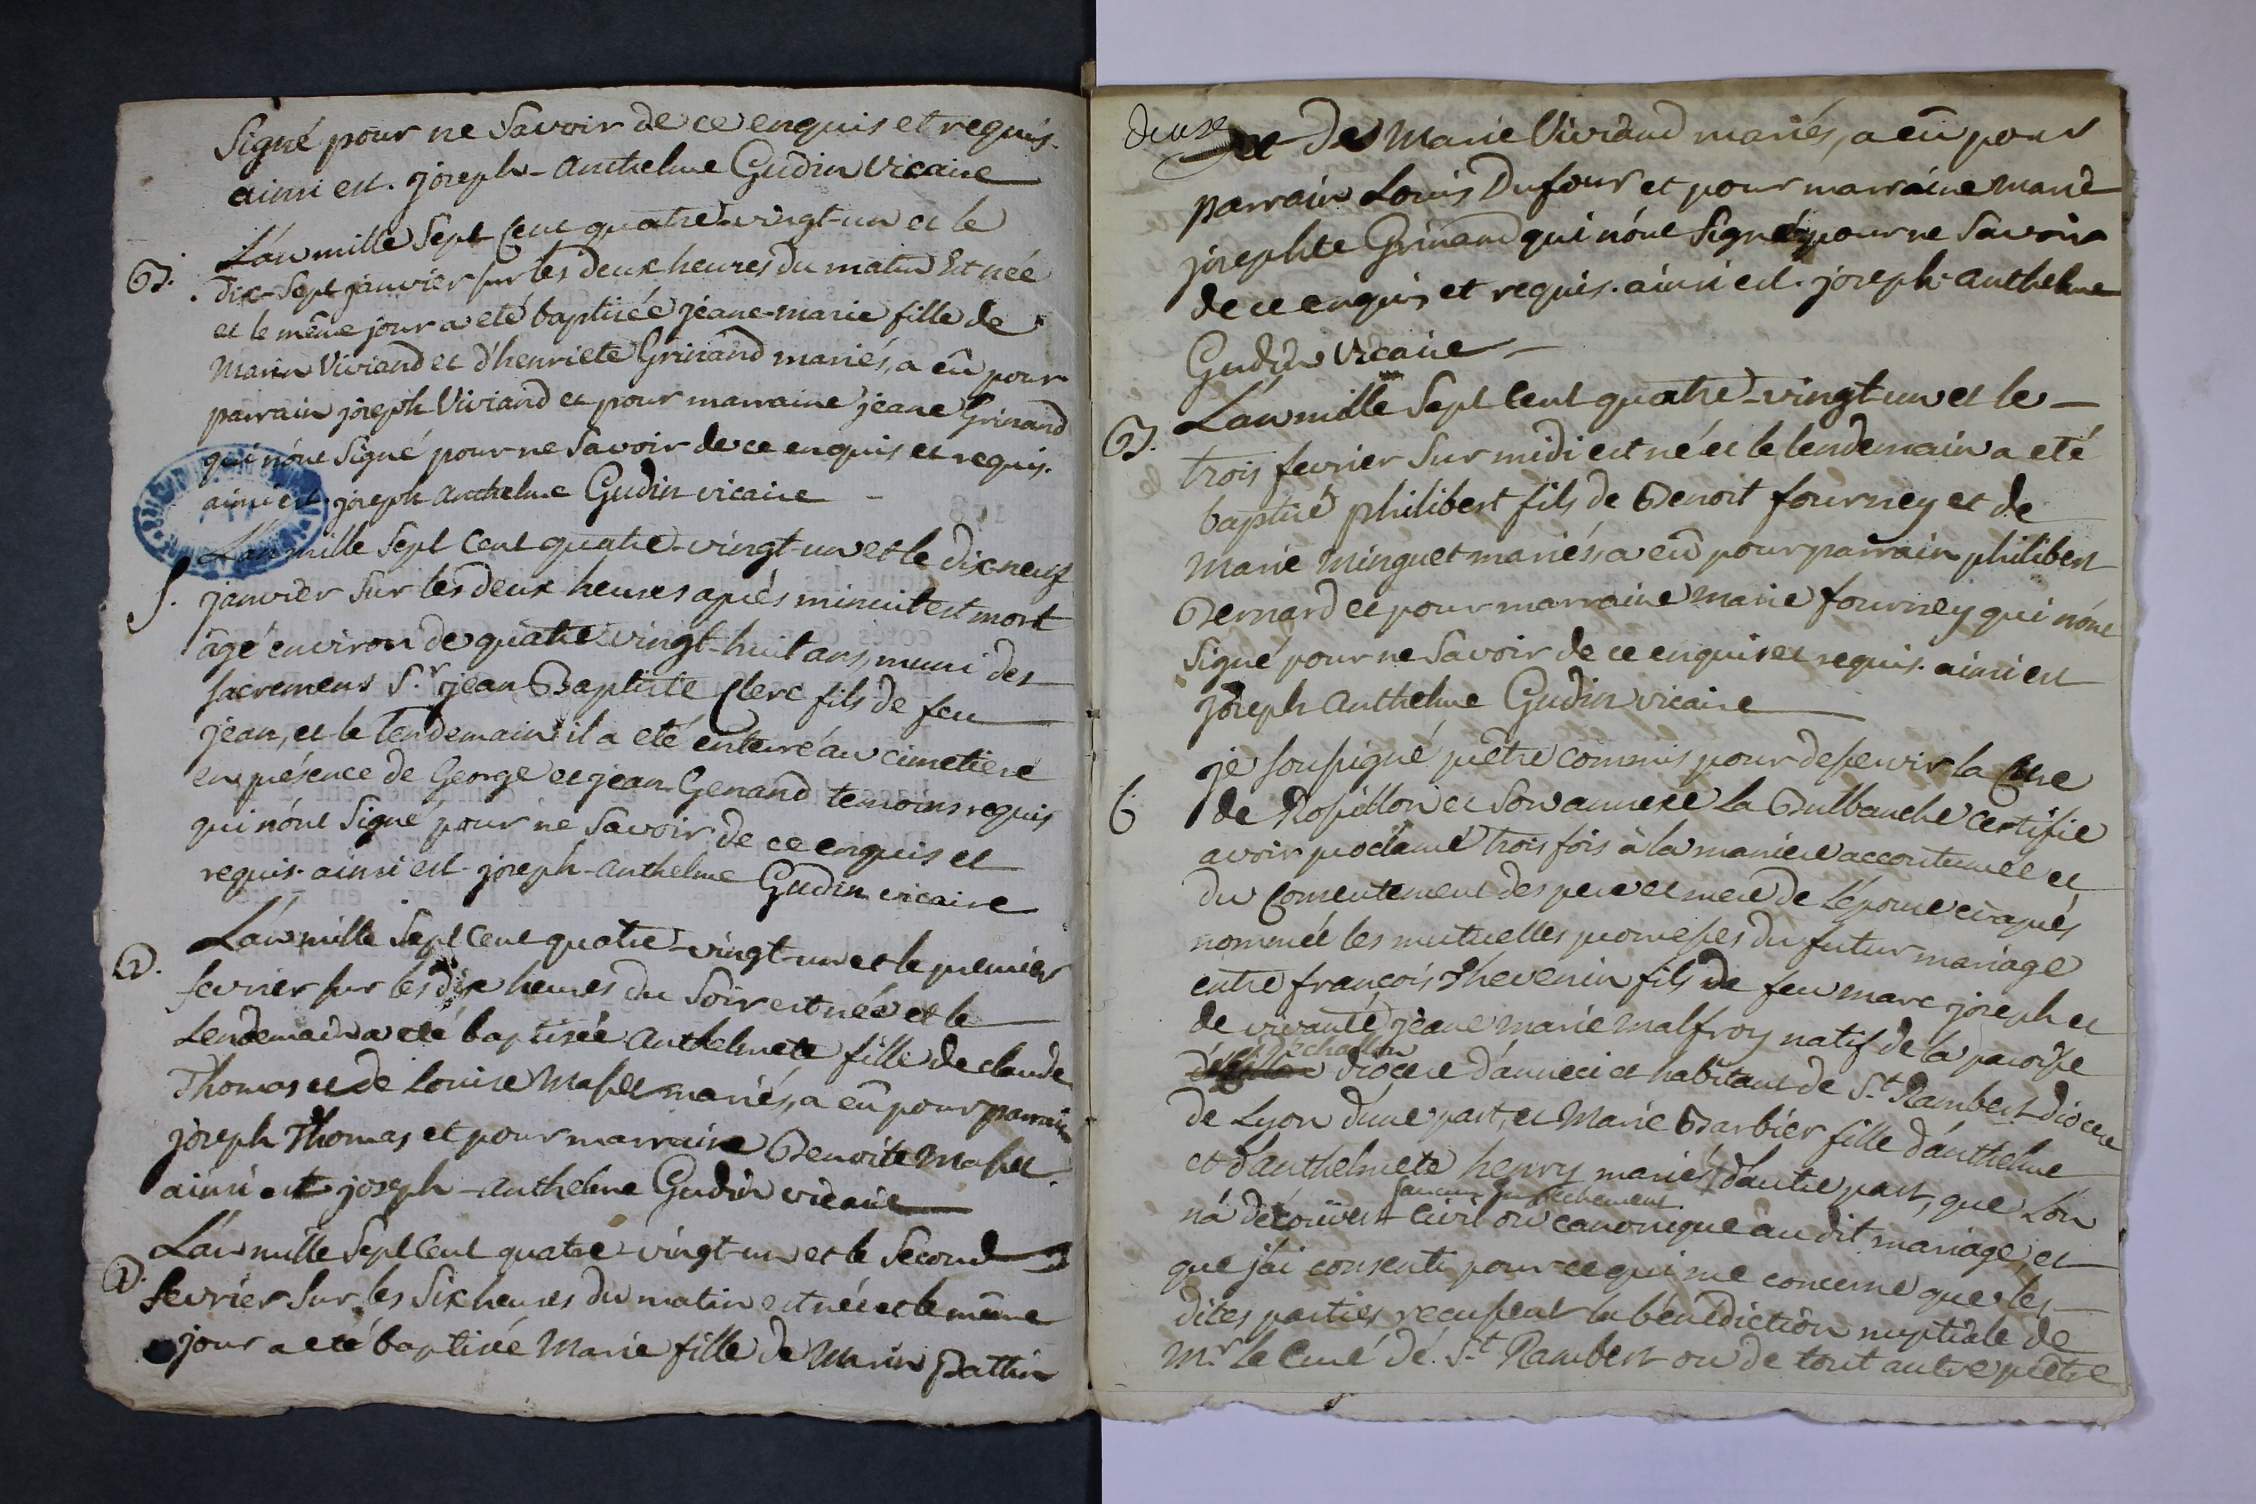 Signé pour ne Savoir de ce enquis et requis.
ainsi est. joseph-anthelme Gudin vicaire
B.
L'an mille Sept Cent quatre-vingt-un et le
dix-Sept janvier sur les deux heures du matin Est née
et le même jour a eté baptisée jeane-marie fille de
Marin Viviand et d'henriete Grinand mariés, a eû pour
parrain joseph Viviand et pour marraine jeane Grinand
qui n'ont Signé pour ne Savoir de ce enquis et requis.
ainsi est. joseph anthelme Gudin vicaire
S.
L'an mille Sept Cent quatre-vingt-un et le dix neuf
janvier sur les deux heures après minuit est mort
âgé environ de quatre vingt-huit ans, muni des
sacremens S.r jean Baptiste Clerc fils de feu
jean, et le lendemain il a eté enterré au cimetiere
en présence de George et jean Genand temoins requis
qui n'ont Signé pour ne Savoir de ce enquis et
requis. ainsi est. joseph-anthelme Gudin vicaire
B.
L'an mille Sept Cent quatre-vingt-un et le premier
fevrier sur les dix heures du Soir est née et le
Lendemain a eté baptisée anthelmete fille de claude
Thomas et de Louise Masset mariés, a eû pour parrain
joseph Thomas et pour marraine Benoite Masset.
ainsi est joseph-anthelme Gudin vicaire
B.
L'an mille Sept Cent quatre-vingt-un et le Second
fevrier Sur les Six heures du matin est née et le même
jour a eté baptisée Marie fille de Marin Battin
deuxe
et de Marie Viviand mariés, a eû pour
parrain Louis Dufour et pour marraine marie
josephte Grinand qui n'ont Signé pour ne Savoir
de ce enquis et requis. ainsi est. joseph-anthelme
Gudin Vicaire
B.
L'an mille Sept Cent quatre-vingt-un et le
trois fevrier Sur midi est né et le lendemain a eté
baptisé philibert fils de Benoit fourney et de
Marie Minguet mariés, a eû pour parrain philibert
Bernard et pour marraine marie fourney qui n'ont
Signé pour ne Savoir de ce enquis et requis. ainsi est
joseph anthelme Gudin vicaire
C.
je soussigné prêtre commis pour desservir la Cure
de Rossillon et Son annexe La Bulbanche Certifie
avoir proclamé trois fois à la maniere accoutumée et
du Consentement des pere et mere de L'épouse ci après
nommée les mutuelles promesses du futur mariage
entre françois Thevenin fils de feu marc joseph et
de vivante jeane marie malfroy natif de la paroisse
diocese d'anneci et habitant de S.t Rambert diocese
de Lyon d'une part, et Marie Barbier fille d'anthelme
et d'anthelmete henry mariés d'autre part, que L'on
n'a découvert aucun empechement civil ou canonique au dit mariage, et
que j'ai consenti pour ce qui me concerne que les
dites parties recussent la bénédiction nuptiale de
M.r le Curé de S.t Rambert ou de tout autre prêtre